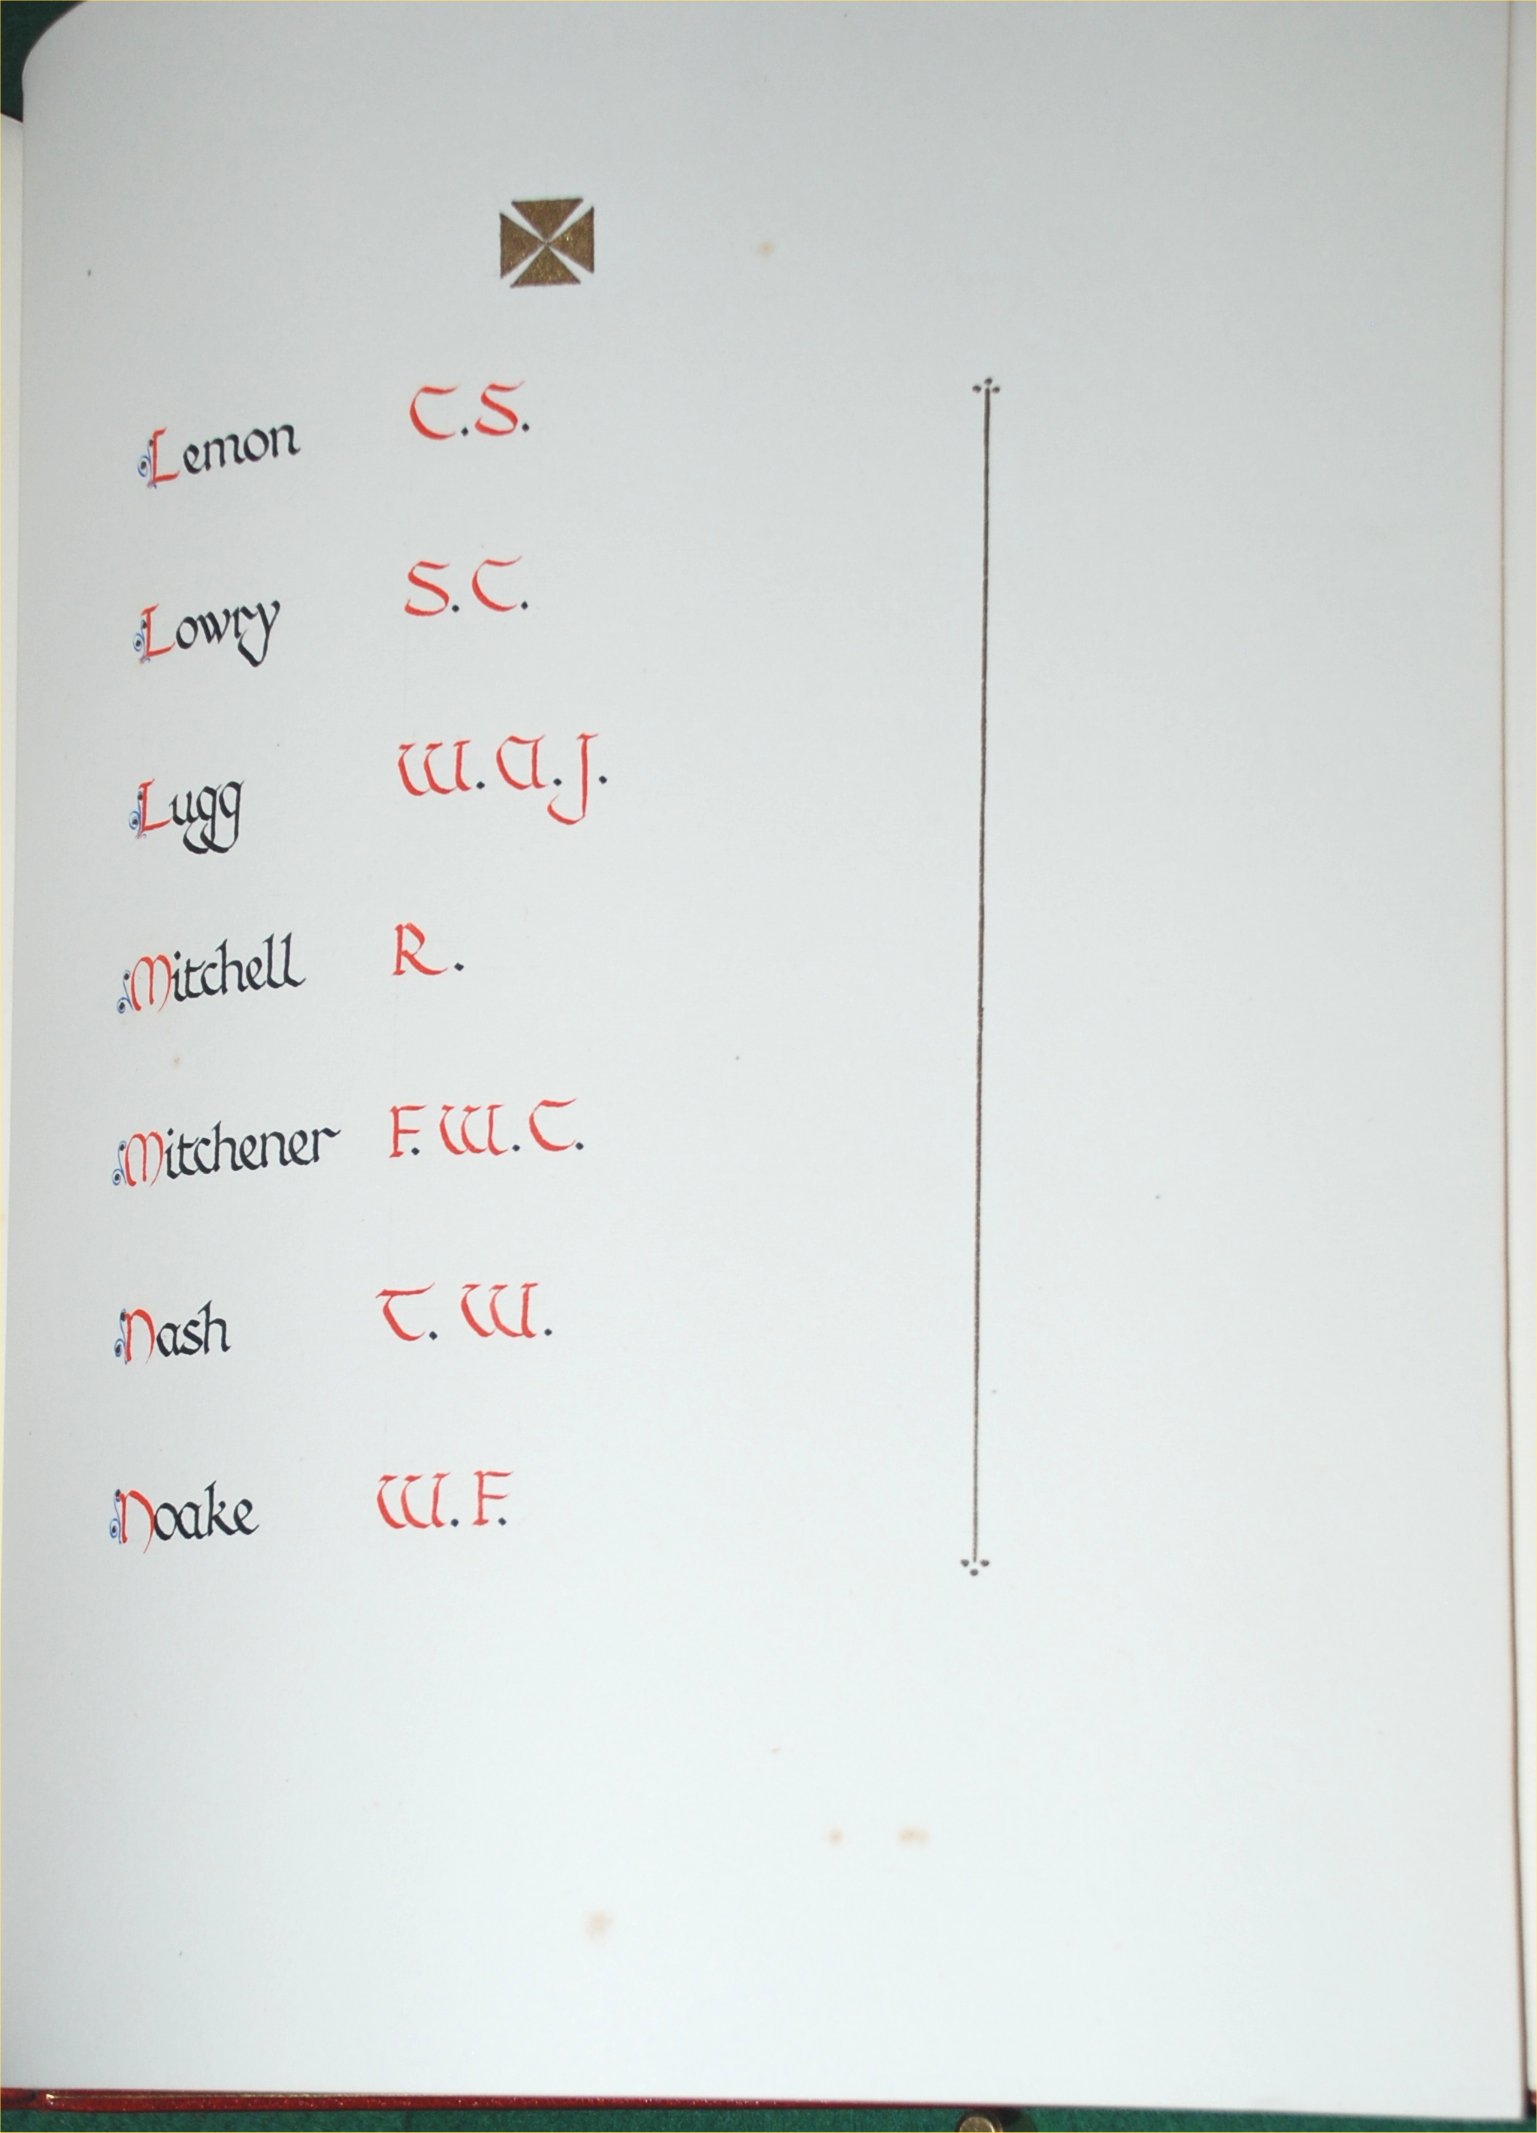 Lemon C.S.
Lowry S.C.
Lugg W.A.J.
Mitchell R.
Mitchener F.W.C.
Nash T.W.
Noake W.F.